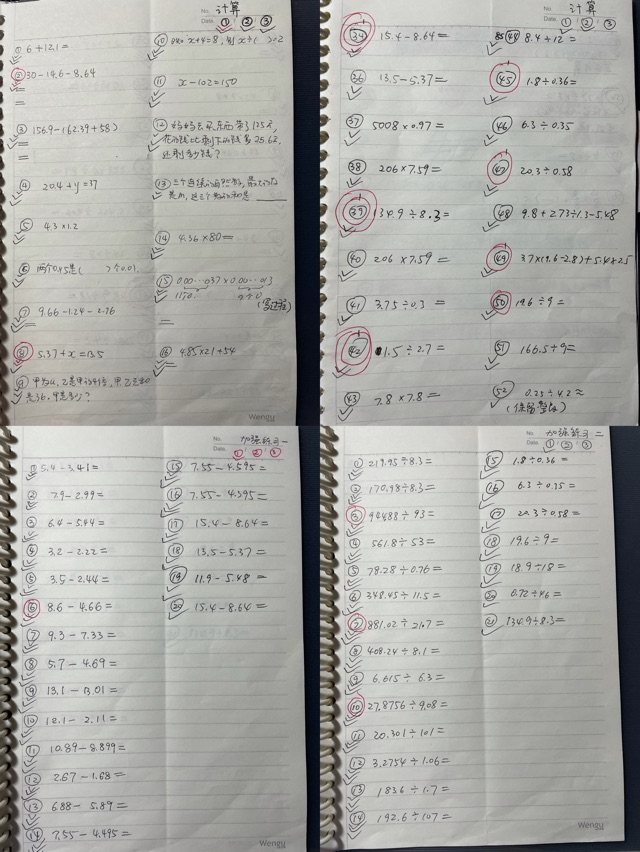 计算
No.
Date. ① ② ③
① 6+12.1=
② 30-14.6-8.64
③ 156.9-(62.39+58)
④ 20.4+y=37
⑤ 4.3×1.2
⑥ 两个0.45是( )个0.01.
⑦ 9.66-1.24-2.76
⑧ 5.37+x=13.5
是36,甲是多少?
⑪ x-102=150
⑫ 妈妈去买东西带了125元,
花的钱比剩下的钱多25.62,
还剩多少钱?
⑭ 4.36×80=
⑮ 0.00…037×0.00…013
(写过程)
⑯ 4.85×21+54
Wengu
计算
No.
Date. ① ② ③
㉞ 15.4-8.64=
㊱ 13.5-5.37=
㊲ 5008×0.97=
㊳ 206×7.59=
㊴ 134.9÷8.3=
㊵ 206×7.59=
㊶ 3.75÷0.3=
㊷ 1.5÷2.7=
㊸ 7.8×7.8=
㊹ 8.4+12=
㊺ 1.8÷0.36=
㊻ 6.3÷0.35
㊼ 20.3÷0.58
㊽ 9.8+2.73÷1.3-5.48
㊾ 3.7×(9.6-2.8)+5.4×2.5
㊿ 19.6÷9=
51 166.5÷9=
52 0.25÷4.2≈
(保留整数)
加强练习一
No.
Date. ① ② ③
① 5.4-3.41=
② 7.9-2.99=
③ 6.4-5.94=
④ 3.2-2.22=
⑤ 3.5-2.44=
⑥ 8.6-4.66=
⑦ 9.3-7.33=
⑧ 5.7-4.69=
⑨ 13.1-13.01=
⑩ 12.1-2.11=
⑪ 10.89-8.899=
⑫ 2.67-1.68=
⑬ 6.88-5.89=
⑭ 7.55-4.495=
⑮ 7.55-4.595=
⑯ 7.55-4.395=
⑰ 15.4-8.64=
⑱ 13.5-5.37=
⑲ 11.9-5.48=
⑳ 15.4-8.64=
Wengu
加强练习二
No.
Date. ① ② ③
① 219.95÷8.3=
② 170.98÷8.3=
③ 94488÷93=
④ 561.8÷53=
⑤ 78.28÷0.76=
⑥ 348.45÷11.5=
⑦ 881.02÷21.7=
⑧ 408.24÷8.1=
⑨ 6.615÷6.3=
⑩ 27.8756÷9.08=
⑪ 20.301÷101=
⑫ 3.2754÷1.06=
⑬ 1836÷1.7=
⑭ 192.6÷107=
⑮ 1.8÷0.36=
⑯ 6.3÷0.35=
⑰ 20.3÷0.58=
⑱ 19.6÷9=
⑲ 18.9÷18=
⑳ 0.72÷46=
㉑ 134.9÷8.3=
Wengu